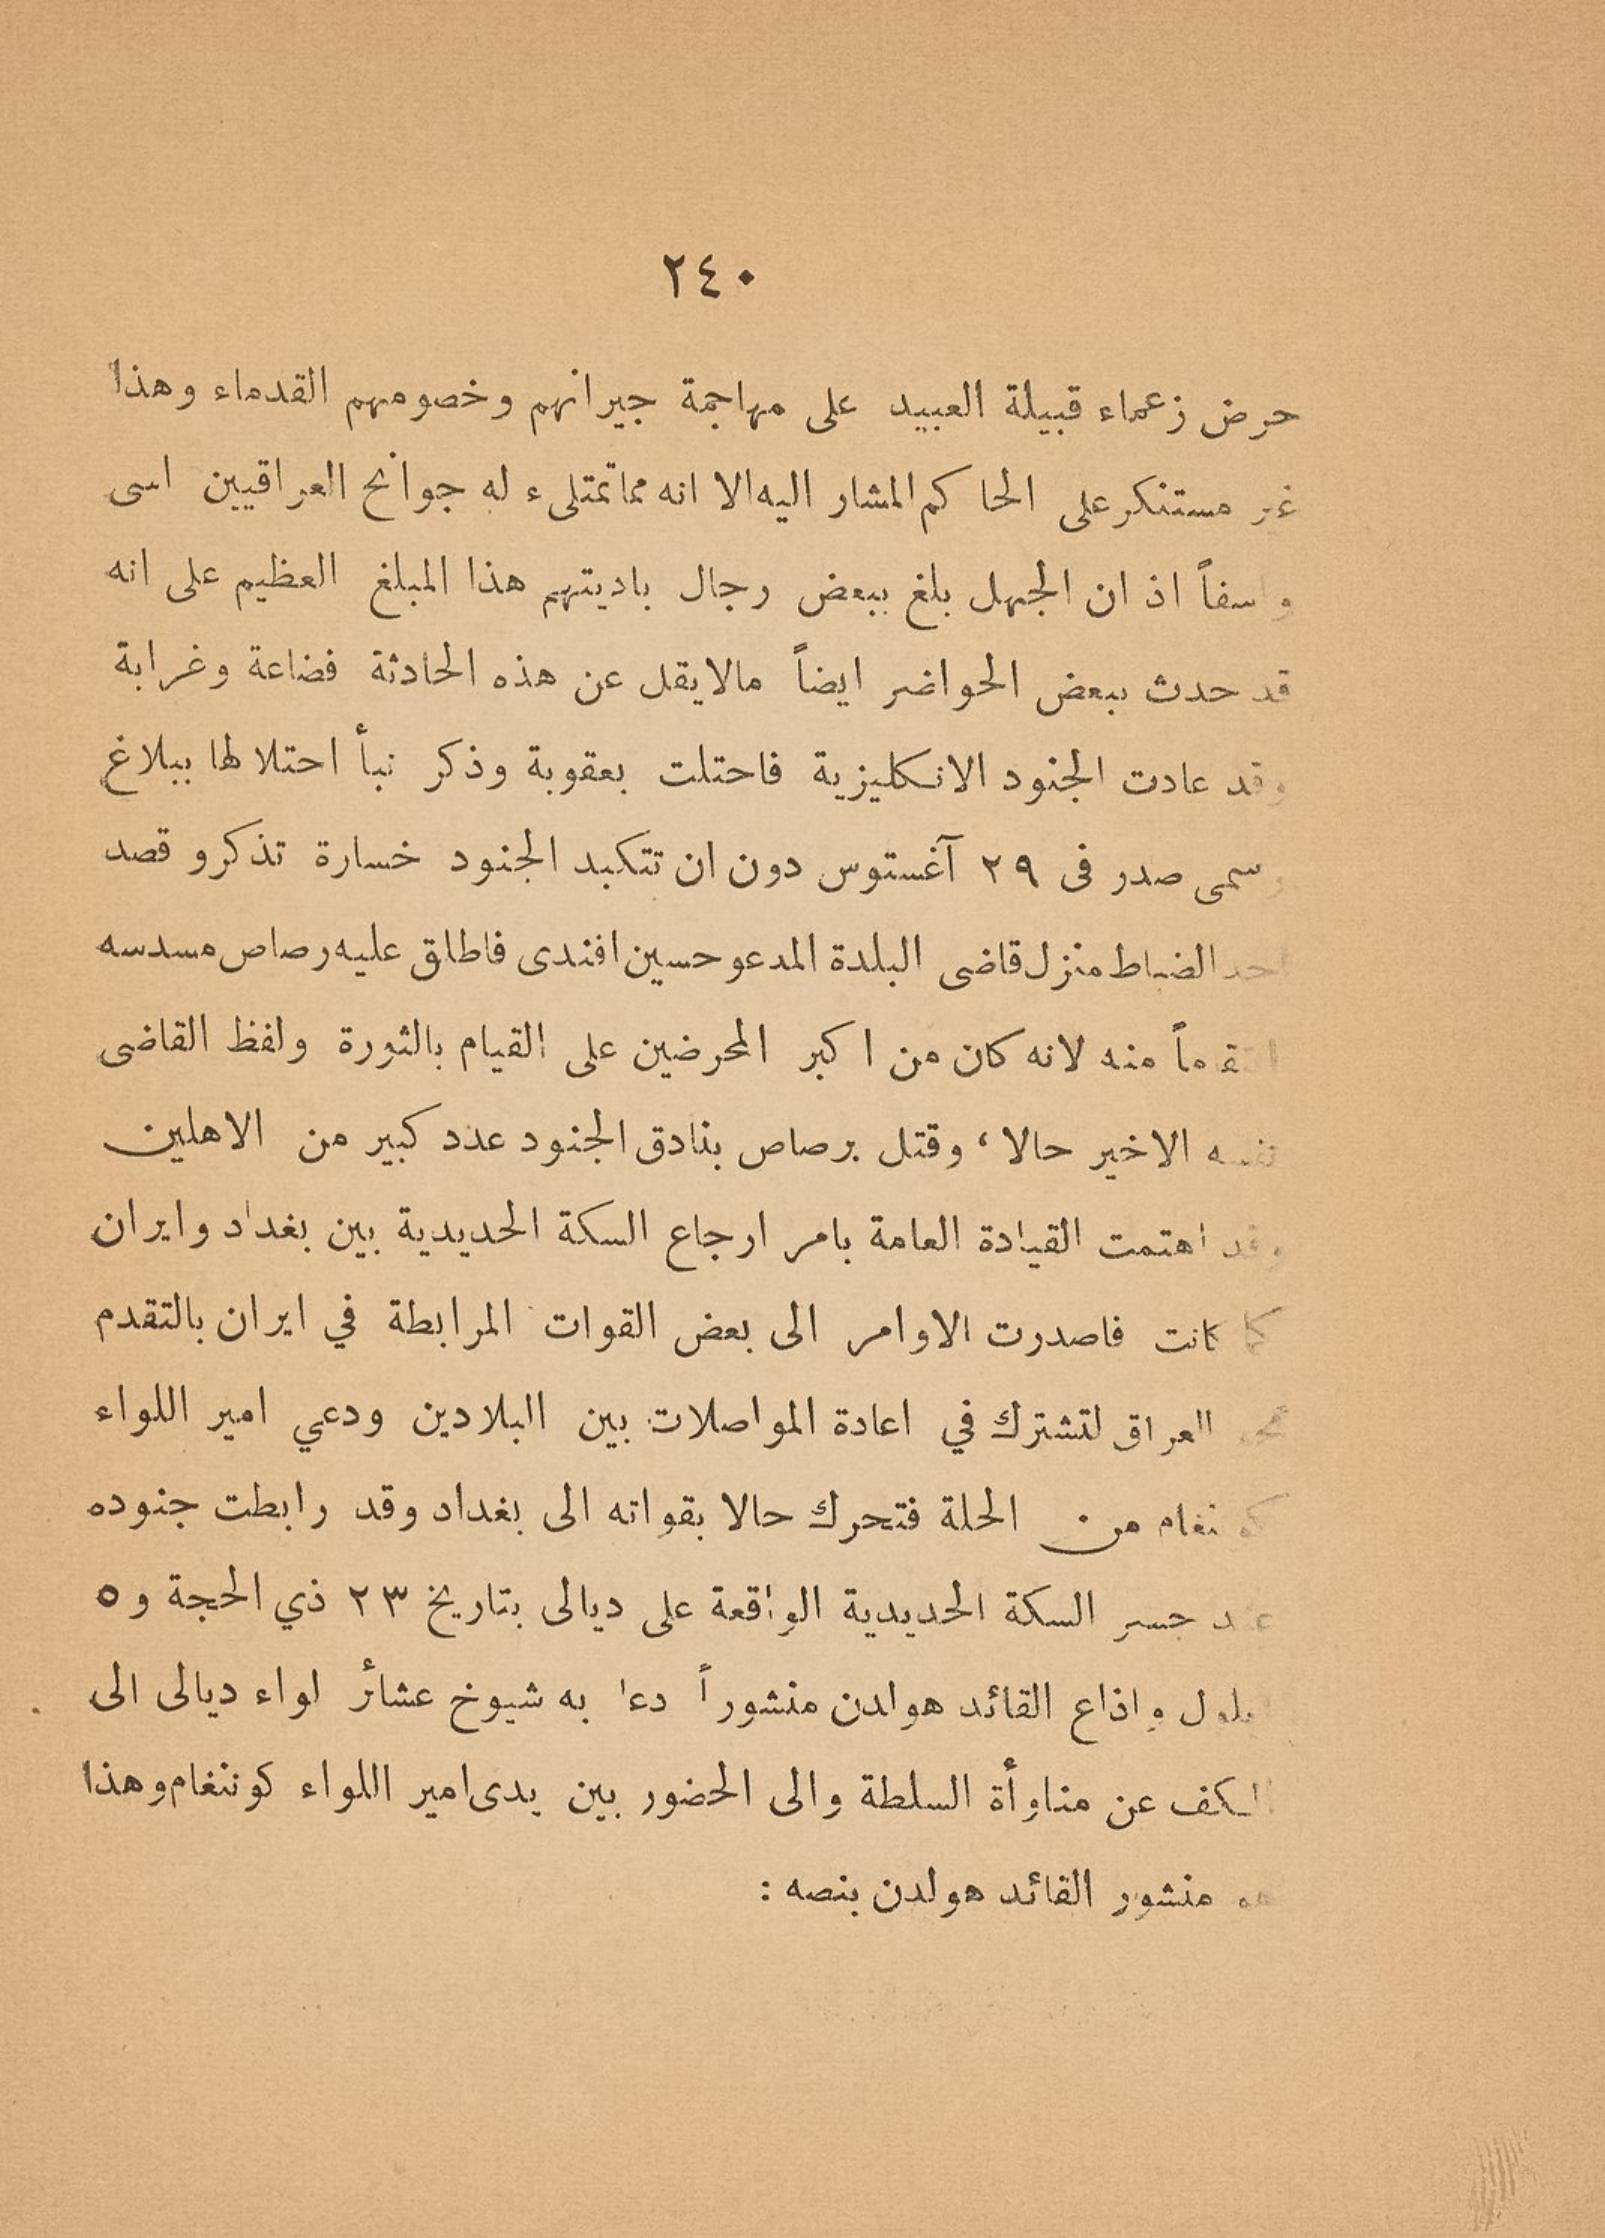 ٢٤٠
حرض زعماء قبيلة العبيد على مهاجمة جيرانهم وخصومهم القدماء وهذا
غير مستنكر على الحاكم المشار اليه الا انه مما تمتلىء له جوانح العراقيين اسى
واسفاً اذ ان الجهل بلغ ببعض رجال باديتهم هذا المبلغ العظيم على انه
قد حدث ببعض الحواضر ايضاً مالايقل عن هذه الحادثة فضاعة وغرابة
وقد عادت الجنود الانكليزية فاحتلت بعقوبة وذكر نبأ احتلالها ببلاغ
رسمى صدر فى ٢٩ آغستوس دون ان تتكبد الجنود خسارة تذكر وقصد
احد الضباط منزل قاضى البلدة المدعو حسين افندى فاطلق عليه رصاص مسدسه
انتقوماً منه لانه كان من اكبر المحرضين على القيام بالثورة ولفظ القاضى
نفسه الاخير حالا، وقتل برصاص بنادق الجنود عدد كبير من الاهلين
وقد اهتمت القيادة العامة بامر ارجاع السكة الحديدية بين بغداد وايران
كما كانت فاصدرت الاوامر الى بعض القوات المرابطة في ايران بالتقدم
نحو العراق لتشترك في اعادة المواصلات بين البلادين ودعي امير اللواء
كوننغام من الحلة فتحرك حالا بقواته الى بغداد وقد رابطت جنوده
عند جسر السكة الحديدية الواقعة على ديالى بتاريخ ٢٣ ذي الحجة و ٥
ايلول واذاع القائد هولدن منشوراً دعا به شيوخ عشائر لواء ديالى الى
الكف عن مناوأة السلطة والى الحضور بين يدى امير اللواء كوننغام وهذا
هو منشور القائد هولدن بنصه :